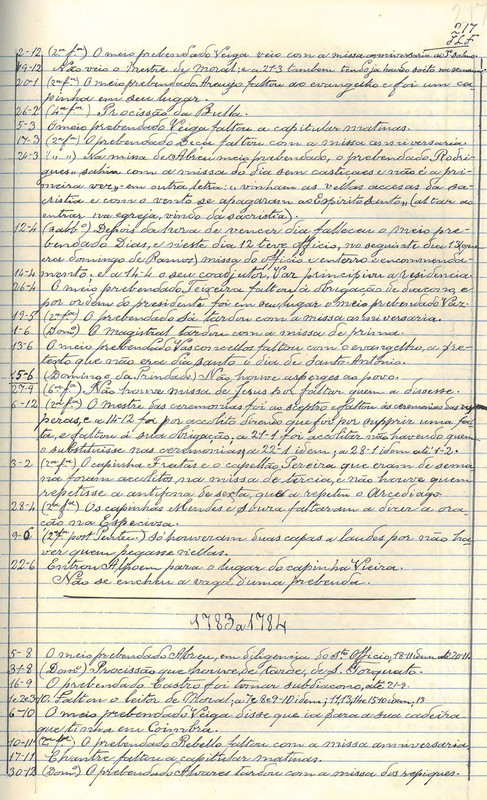 217
J.L.F.
2-12 (2ª fª) O meio prebendado Veiga veio com a missa anniversaria ao 3º salmo.
19-12 Não veio o Mestre de Moral, e a 21-3 tambem tendo já havido sueto na semana.
20-1 (2ª fª) O meio prebendado Araujo faltou ao evangelho e foi um ca
pinha em seu logar.
26-2 (4ª fª) Procissão da Bulla.
5-3 O meio prebendado Veiga faltou a capitular matinas.
17-3 (2ª fª) O prebendado Deça faltou com a missa anniversaria.
24-3 (" ") Na missa de Abreu meio prebendado, o prebendado Rodri
gues, sahiu com a missa do dia sem castiçaes e não é a pri
meira vez, em outra letra: "vinham as vellas accesas da sa
cristia e com o vento se apagaram ao Espirito Santo" (altar ao
entrar na egreja, vindo da sacristia).
12-4 (sabbº) Depois da hora de vencer dia falleceu o meio pre
bendado Dias, e n'este dia 12 teve officio, no seguinte dia 13 (que
era domingo de Ramos) missa do officio e enterro e encommenda
14-4 mento; e a 14-4 o seu coadjutor, Vaz principiou a residencia.
26-4 O meio prebendado Teixeira faltou á obrigação de diacono, e
por ordem do presidente foi em seu logar o meio prebendado Vaz.
19-5 (2ª fª) O prebendado Sá tardou com a missa anniversaria.
1-6 (Domº) O magistral tardou com a missa de prima.
13-6 O meio prebendado Vasconcellos faltou com o evangelho, a pre
texto que não era dia santo é dia de Santo Antonio.
15-6 (Domingo da Trindade) Não houve asperges ao povo.
27-9 (6ª fª) Não houve missa de Jesus por faltar quem a dissesse.
6-12 (2ª fª) O mestre das ceremonias foi ao sceptro e faltou ás ceremonias das ves
peras, e a 14-12 foi por acolito dizendo que foi por supprir uma fal
ta, e faltou á sua obrigação, a 21-1 foi acolitar não havendo quem
o substituisse nas ceremonias, a 22-1 idem, a 28-1 idem até 1-2.
3-2 (2ª fª) O capinha Freitas e o capellão Pereira que eram de sema
na foram acolitos na missa de tercia, e não houve quem
repetisse a antifona de sexta, que a repetiu o Arcediago.
28-4 (2ª fª) Os capinhas Mendes e Souza faltaram a dizer a ora
ção na Especiosa.
9-6 (2ª fª post Pentec.) Só houveram duas capas a laudes por não ha
ver quem pegasse n'ellas.
22-6 Entrou Alpoem para o lugar do capinha Vieira.
Não se encheu a vaga d'uma prebenda.
1783 a 1784
5-8 O meio prebendado Abreu, em diligencia do Stº Officio, 18-11 idem até 20-11.
31-8 (Domº) Procissão que houve, de tarde, de S. Torquato.
16-9 O prebendado Castro foi tomar subdiacono, até 21-9.
1, 2 e 3-10. Faltou o leitor de Moral; a 7, 8 e 9-10 idem; 13, 14 e 15-10 idem, 13
6-10 O meio prebendado Veiga disse que ia para a sua cadeira
que tinha em Coimbra.
10-11 (2ª fª) O prebendado Rebello faltou com a missa anniversaria.
17-11 Chantre faltou a capitular matinas.
30-12 (Domº) O prebendado Alvares tardou com a missa dos repiques.